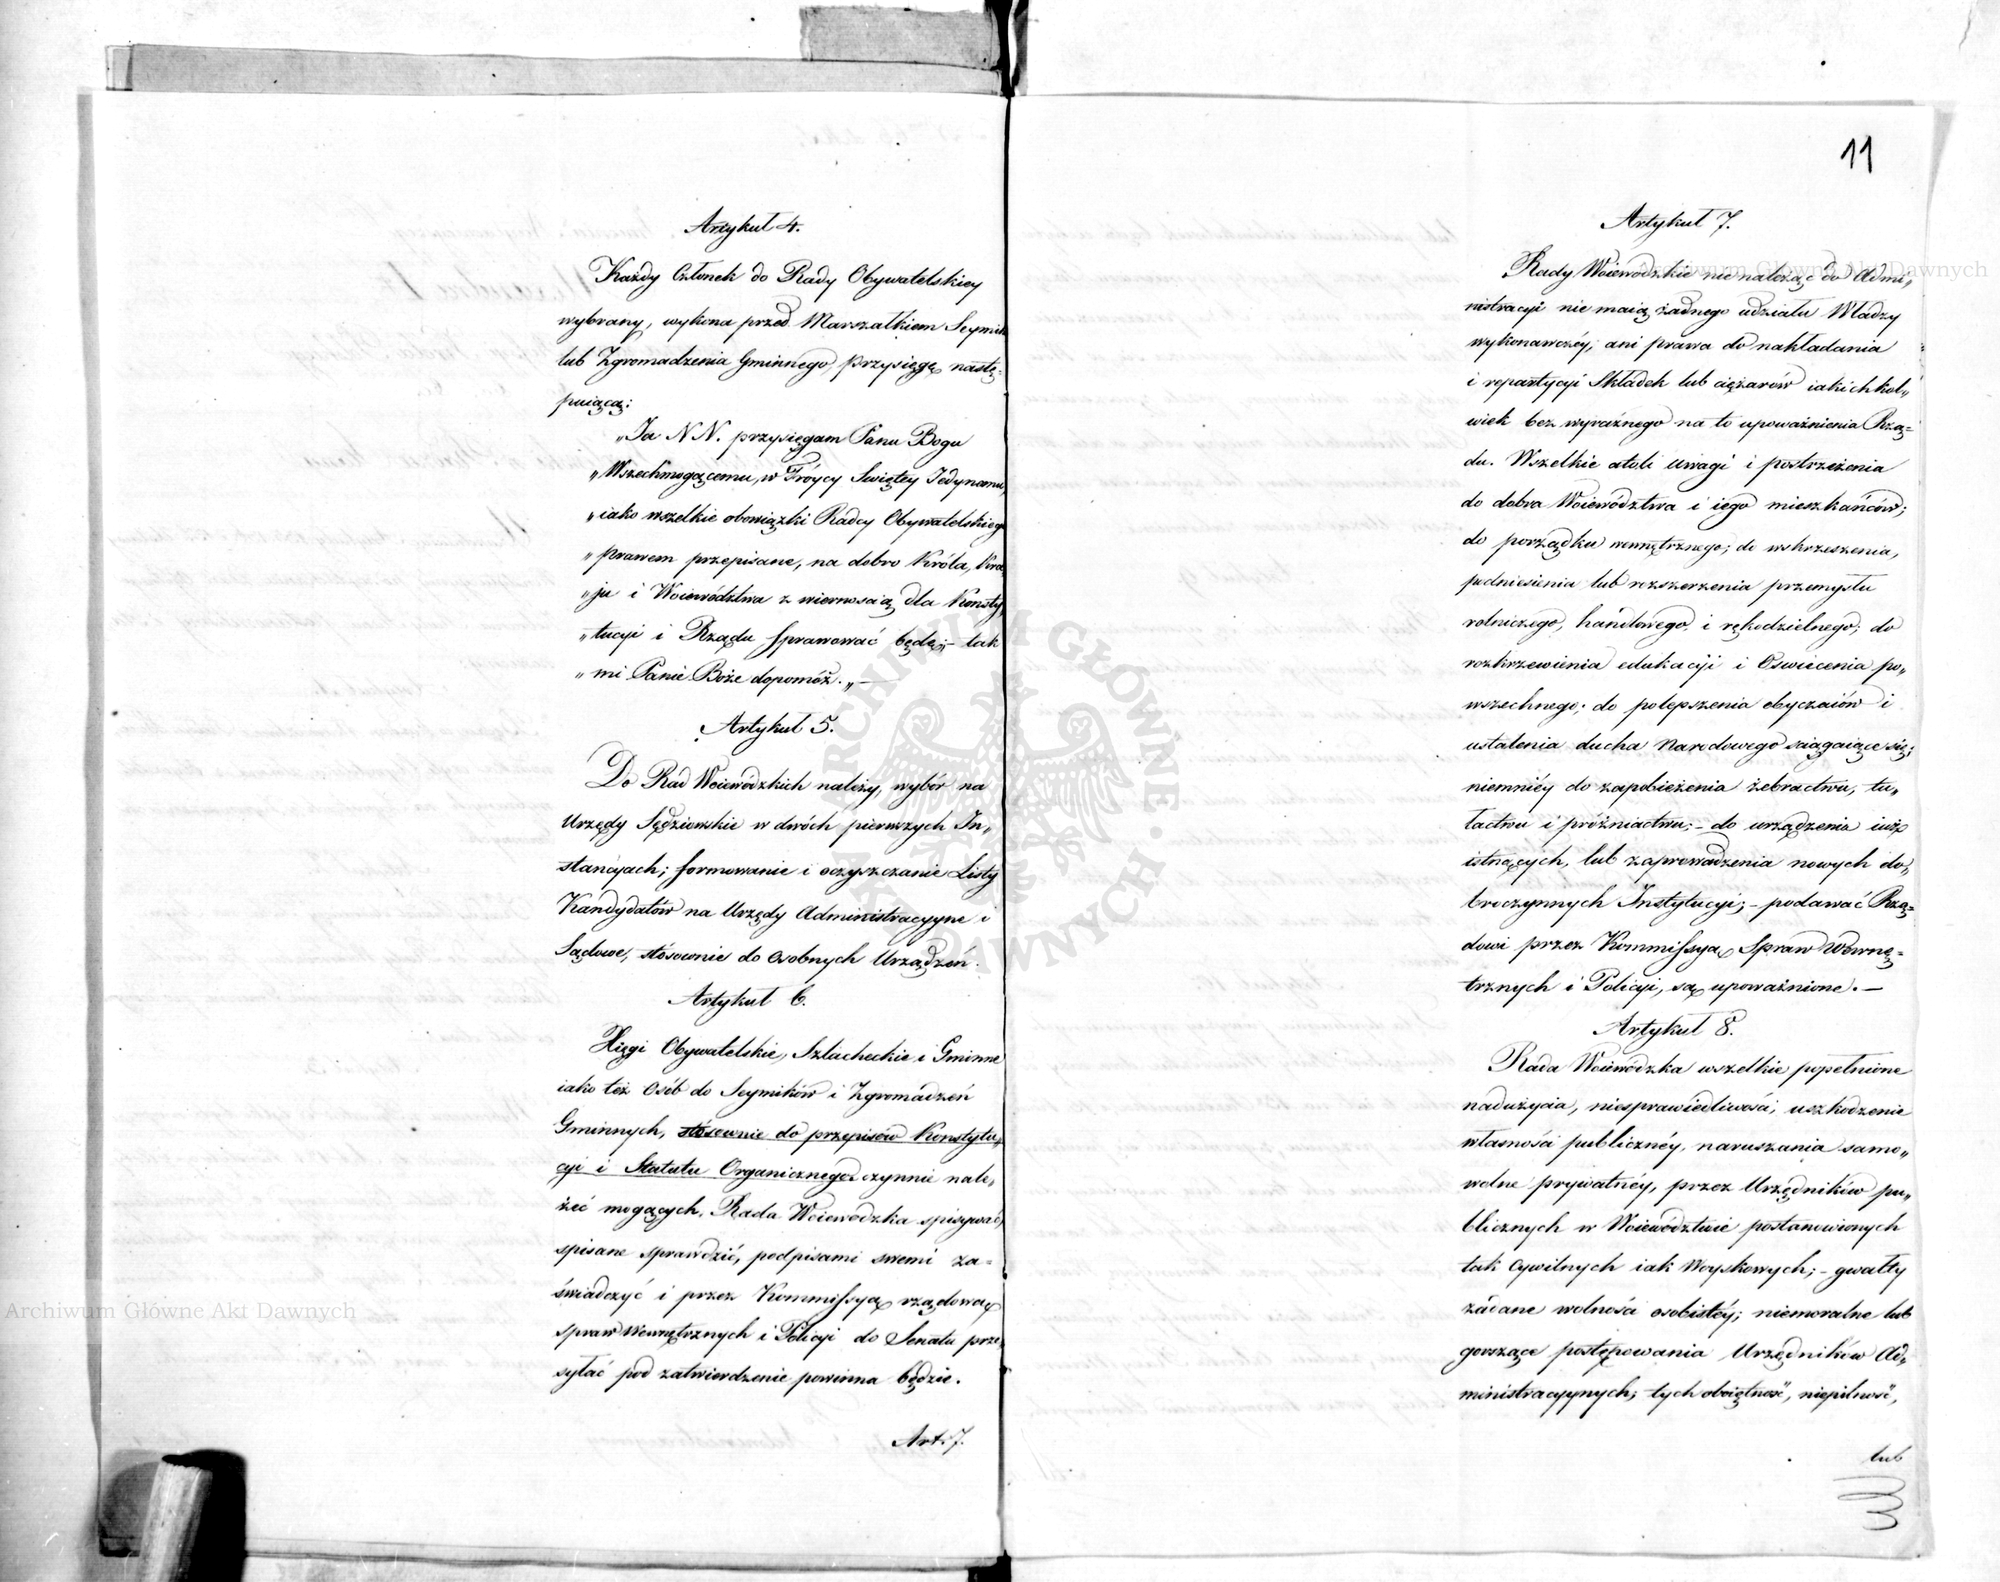 Artykuł 4.
Każdy Członek do Rady Obywatelskiey
wybrany, wykona przed Marszałkiem Seymik
lub Zgromadzenia Gminnego przysięgę nastę=
puiącą:
„Ja NN. przysięgam Panu Bogu
„Wszechmogącemu, w Tróycy Swiętey Jedynemu,
„iako wszelkie obowiązki Radcy Obywatelskiego
„prawem przepisane, na dobro Króla, Kra,
„ju i Woiewództwa z wiernoscią dla Konsty,
„tucyi i Rządu sprawować będę;– tak
„mi Panie Boże dopomóż.„—
Artykuł 5.
Do Rad Woiewódzkich należy, wybór na
Urzędy Sędziowskie w dwóch pierwszych In„
stancyach; formowanie i oczyszczanie Listy
Kandydatów na Urzędy Administracyyne i
Sądowe, stósownie do osobnych Urządzeń.
Artykuł 6.
Xięgi Obywatelskie, Szlacheckie i Gminne
iako też osób do Seymików i Zgromadzeń
Gminnych, stósownie do przepisów Konstytu„
cyi i Statutu Organicznego czynnie nale„
żeć mogących, Rada Woiewodzka spisywać,
spisane sprawdzić, podpisami swemi za=
świadczyć i przez Kommissyą rządową
spraw Wewnętrznych i Policyi do Senatu prze
syłać pod zatwierdzenie powinna będzie.
Art: 7.
11
Artykuł 7.
Rady Woiewódzkie nie należąc do Admi„
nistracyi nie maią żadnego udziału Władzy
wykonawczéy; ani prawa do nakładania
i repartycyi Składek lub ciężarów iakichkol„
wiek bez wyraźnego na to upoważnienia Rzą=
du. Wszelkie atoli uwagi i postrzeżenia
do dobra Woiewództwa i iego mieszkańców;
do porządku wewnętrznego; do wskrzeszenia,
podniesienia lub rozszerzenia przemysłu
rolniczego, handlowego, i rękodzielnego; do
rozkrzewienia edukacyi i Oswiecenia po„
wszechnego; do polepszenia obyczaiów i
ustalenia ducha Narodowego sciągaiące się;
niemniéy do zapobieżenia żebractwu, tu„
łactwu i próżniactwu;– do urządzenia iuż
istnących, lub zaprowadzenia nowych do„
broczynnych Instytucyi;– podawać Rzą=
dowi przez Kommissyą Spraw Wewnę=
trznych i Policyi, są upoważnione.—
Artykuł 8.
Rada Woiewódzka wszelkie popełnione
nadużycia, niesprawiedliwości, uszkodzenie
własności publicznéy, naruszania samo„
wolne prywatnéy, przez Urzędników pu„
blicznych w Woiewództwie postanowionych
tak Cywilnych iak Woyskowych;– gwałty
zadane wolności osobistéy; niemoralne lub
gorszące postępowania Urzędników Ad„
ministracyynych; tych oboiętność, niepilność,
lub
Archiwum Główne Akt Dawnych
Archiwum Główne Akt Dawnych
ARCHIWUM GŁÓWNE AKT DAWNYCH